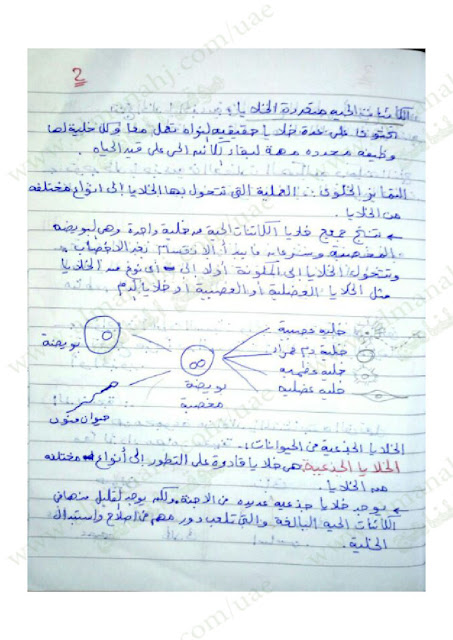 2
الكائنات الحيه متعددة الخلايا:
تحتوي على عدة خلايا حقيقيه النواه تعمل معاً وكل خلية لها
وظيفه محدده مهمة لبقاء الكائن الحي على قيد الحياه.
التمايز الخلوي: العملية التي تتحول بها الخلايا إلى انواع مختلفه
من الخلايا.
← تنتج جميع خلايا الكائنات الحية من خلية واحدة وهي لبويضه
المخصبة وسرعان ما يبدأ الانقسام بعد الاخصاب
وتتحول الخلايا إلى أي نوع من الخلايا
مثل الخلايا العضلية أو العصبية أو خلايا الدم
بويضة
حيوان منوي
بويضة
مخصبة
خليه عصبية
خلية دم حمراء
خلية عظميه
خلية عضليه
الخلايا الجذعية في الحيوانات:
الخلايا الجذعية: هي خلايا قادرة على التطور إلى أنواع مختلفه
من الخلايا.
← توجد خلايا جذعيه عديده في الاجنة ولكن يوجد لقليل منها في
الكائنات الحيه البالغة والتي تلعب دور مهم في اصلاح واستبدال
الخلية.
www.almanahj.com/uae